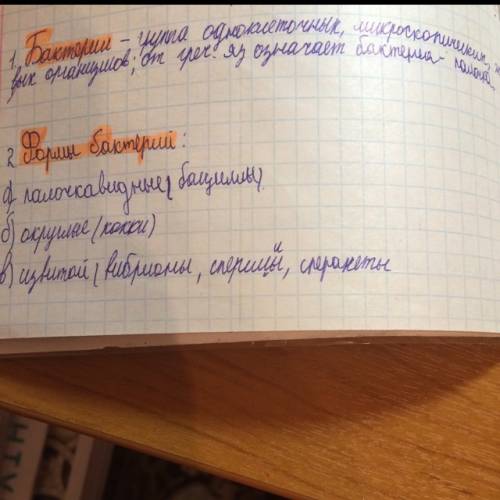 1. Бактерии - группа одноклеточных, микроскопических, жи
вых организмов; от греч. яз означает бактерия - палочка.
2. Формы бактерий:
а) палочкавидные (бациллы)
б) округлые (кокки)
в) извитой (вибрионы, спериллы, сперахеты
НТУ